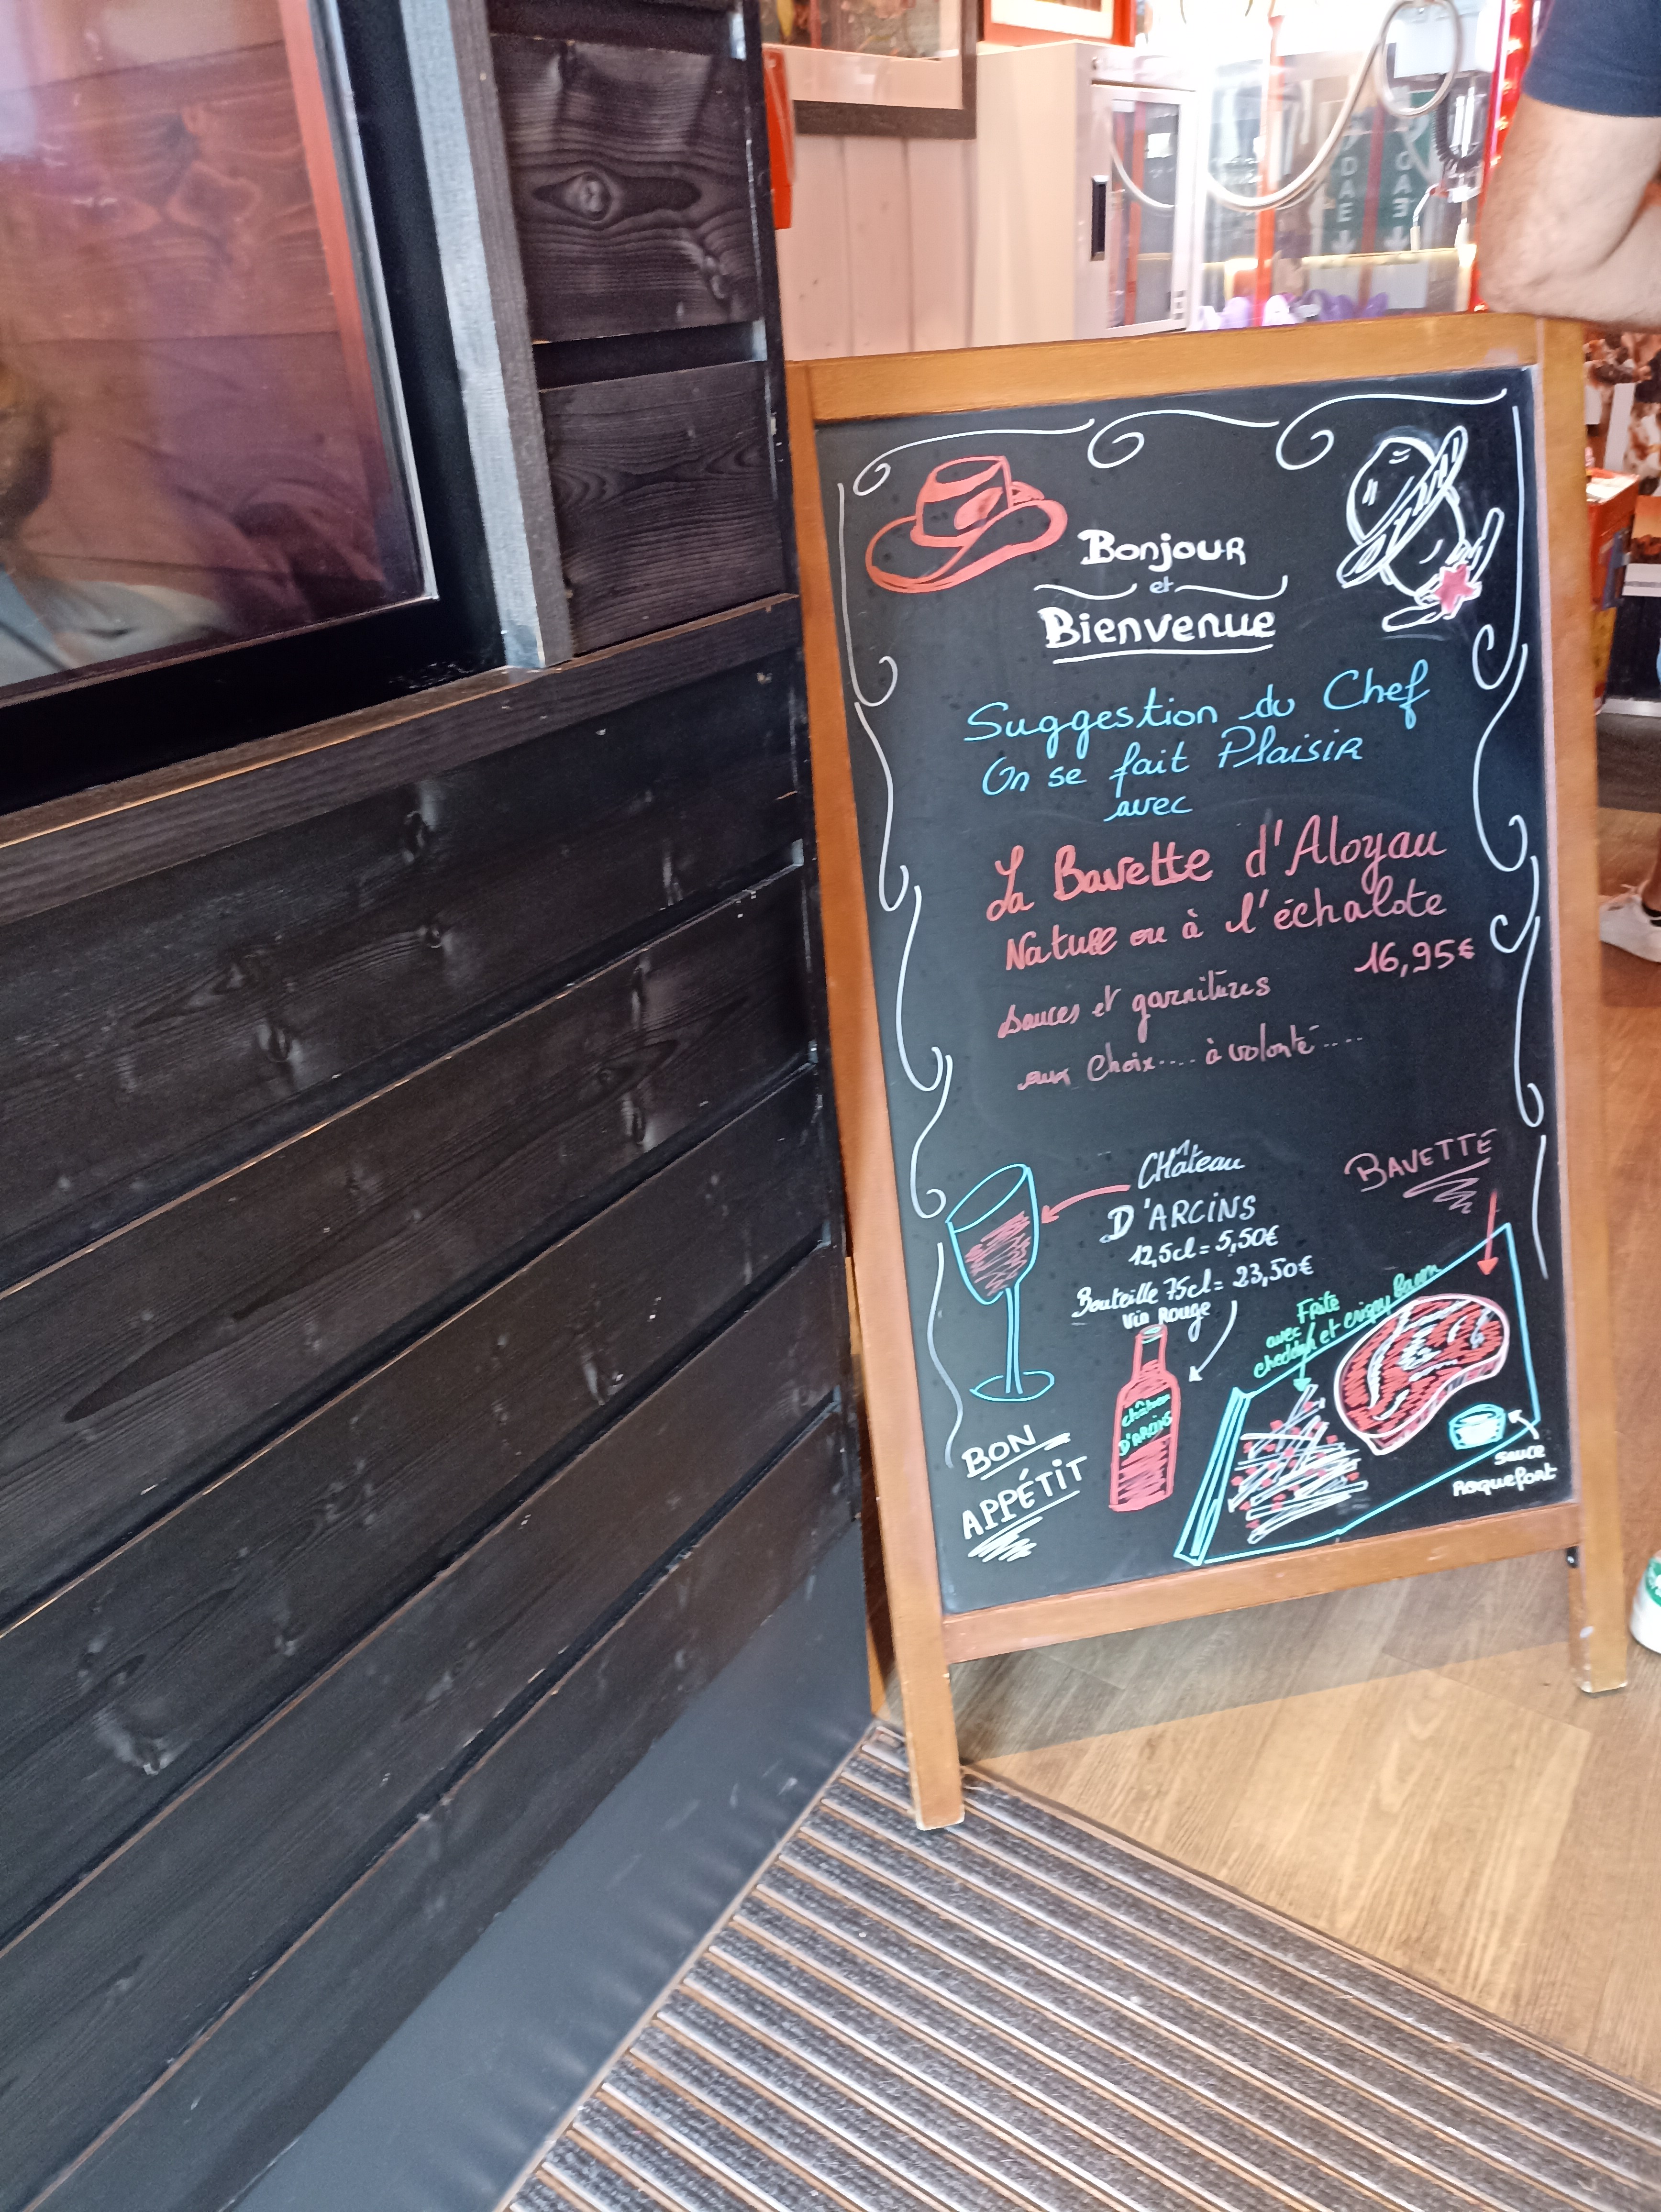 DAE
Bonjour
et
Bienvenue
Suggestion du Chef
On se fait Plaisir
avec
La Bavette d'Aloyau
Nature ou à l'échalote
16,95€
sauces et garnitures
aux choix.... à volonté ....
CHâteau
D'ARCINS
12,5cl = 5,50€
Bouteille 75cl = 23,50€
Vin Rouge
BAVETTE
Frite
avec
cheddar et crispy bacon
château
D'ARCINS
BON
APPÉTIT
sauce
Roquefort